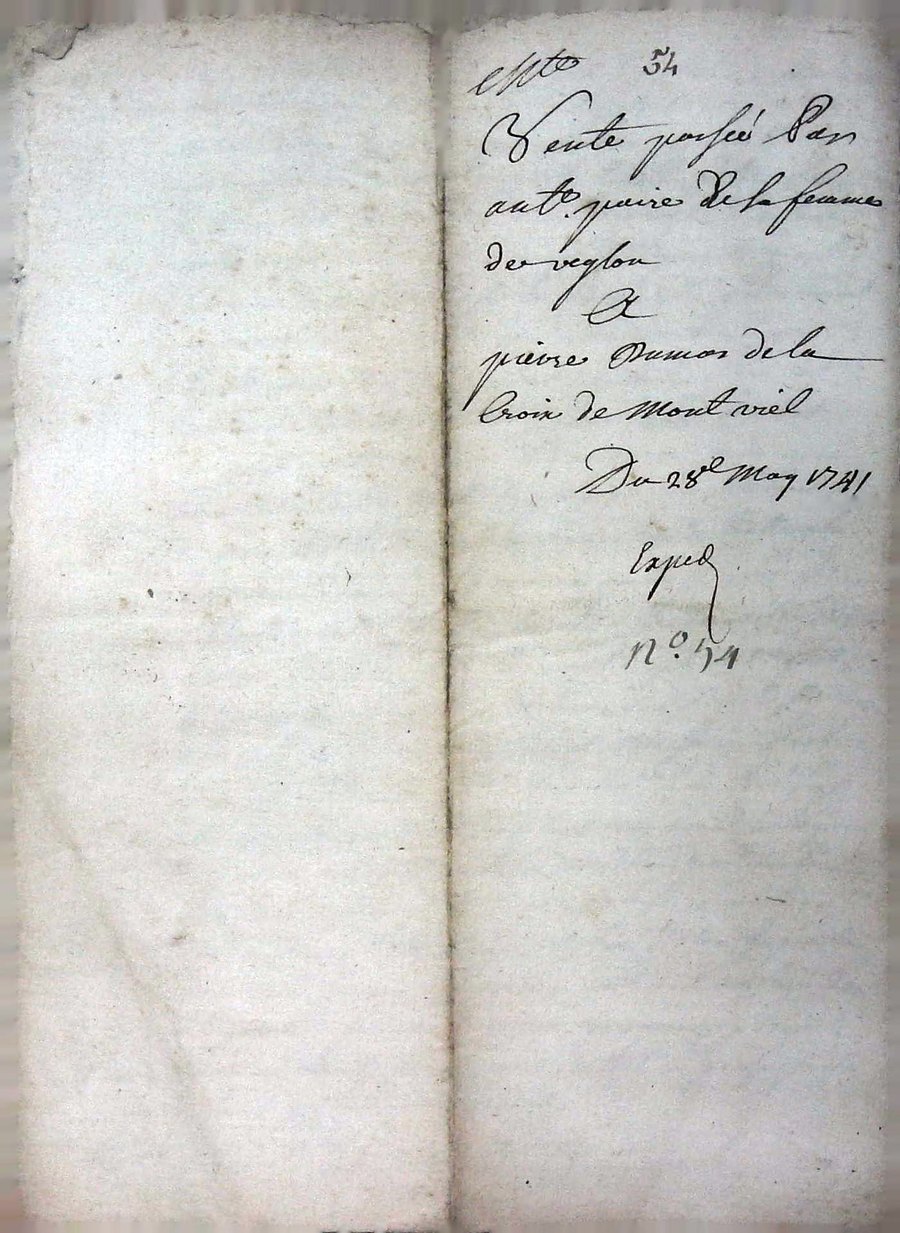 54
Vente passée Par
ante. paire & sa femme
de veglon
A
pierre Dumas de la
Croix de Mont viel
Du 28e May 1741
Exped
no. 54